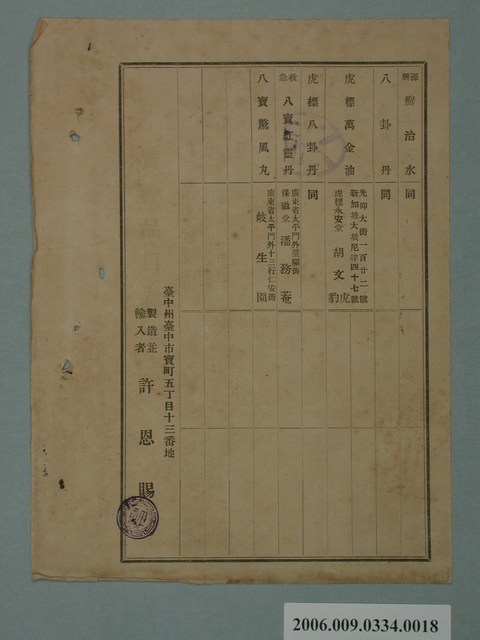 源興 癬治水 同
八卦丹 同
虎標萬金油 光仰大街一百廿二號 新加坡大坡尼律四十七號 虎標永安堂 胡文虎豹
虎標八卦丹 同
救急 八寶紅靈丹 廣東省太平門外荳欄街 保滋堂 潘務菴
八寶驚風丸 廣東省太平門外十三行仁安街 岐生園
臺中州臺中市寶町五丁目十三番地
製造並輸入者 許恩賜
2006.009.0334.0018